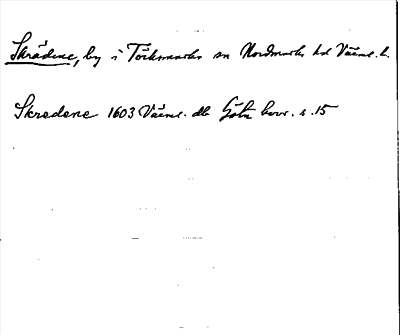 Skrädene, by i Töcksmarks sn Nordmarks hd Värml. l.
Skredene 1603 Värml. dlb Göta hovr. s. 15